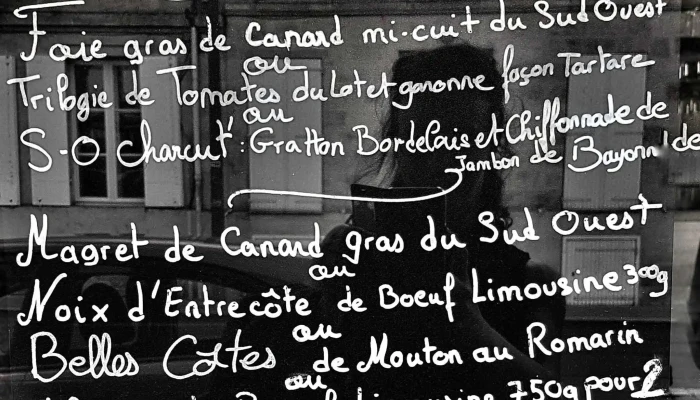 Foie gras de Canard mi-cuit du Sud Ouest
ou
Trilogie de Tomates du Lot et garonne façon Tartare
ou
S-O charcut' : Gratton Bordelais et Chiffonnade de
Jambon de Bayonn' de
Magret de Canard gras du Sud Ouest
ou
Noix d'Entrecôte de Boeuf Limousine 300g
ou
Belles Côtes de Mouton au Romarin
ou
Limousine 750g pour 2